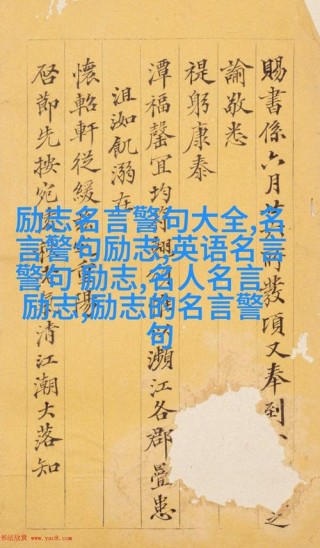 賜書係六月
發頃又奉到
之
諭敬悉
禔躬康泰
潭福馨宜均
瀕江各郡疊患
沮洳飢溺在
懷軺軒從緩
重陽
啓節先按宛
清江潮大落知
励志名言警句大全,名
言警句励志,英语名言
警句 励志,名人名言
励志,励志的名言警
句
书法欣赏 www.yac8.com